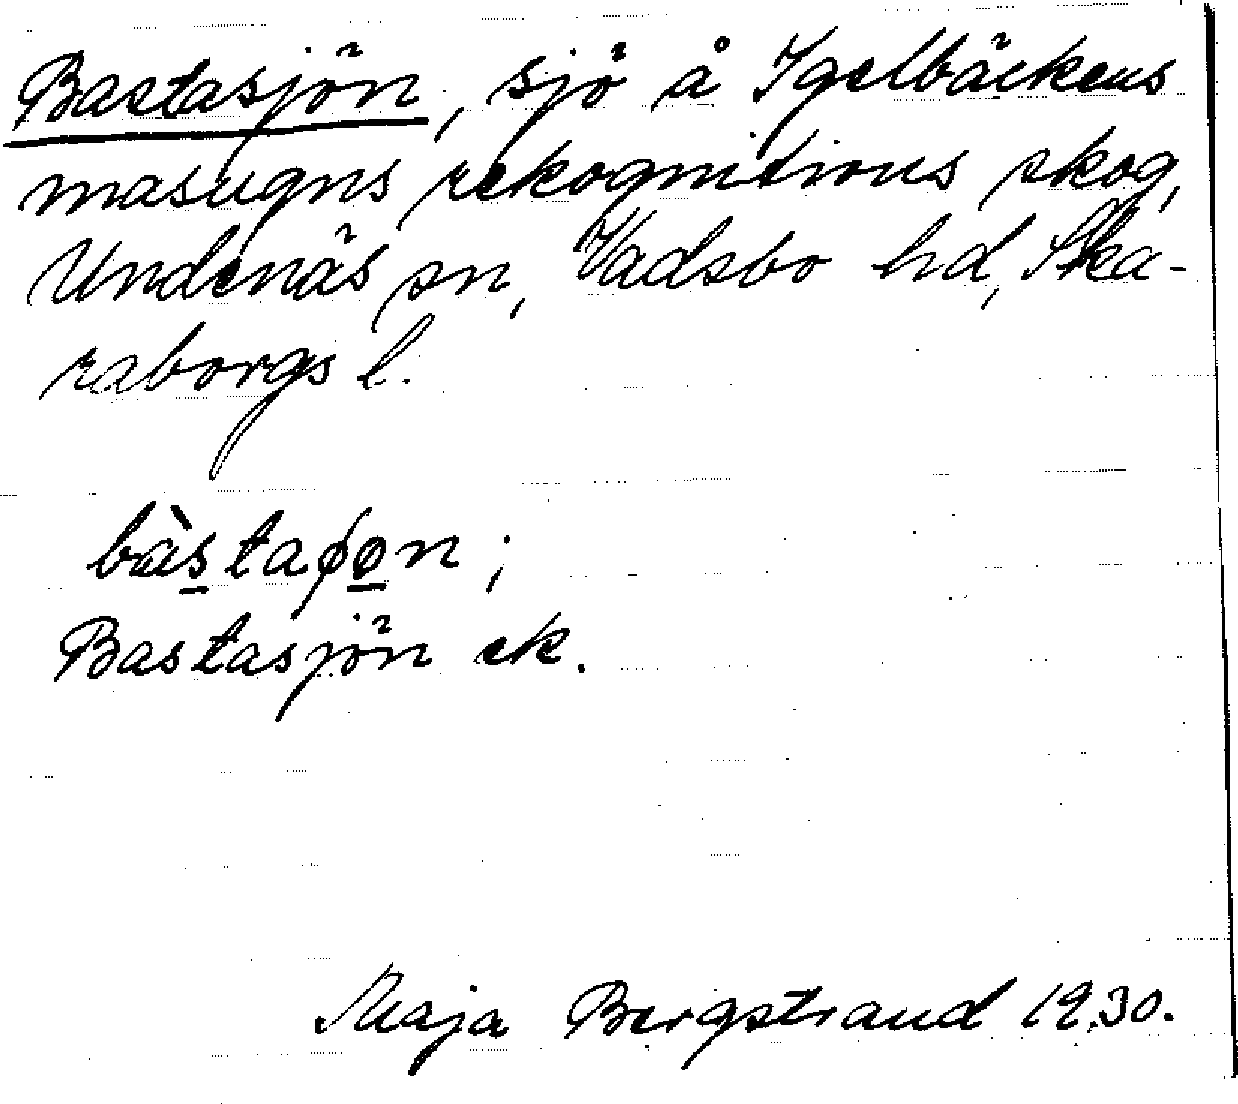 Bastasjön, sjö å Igelbäckens
masugns rekognitions skog,
Undenäs sn, Vadsbo hd, Ska-
raborgs l.
Bastasjön ek.
Maja Bergstrand 1930.